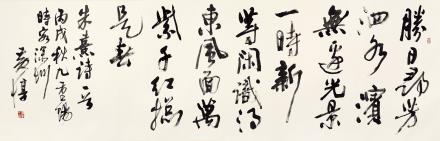 勝日尋芳
泗水濱
無邊光景
一時新
等閑識得
東風面萬
紫千紅總
是春
朱熹詩一首
丙戌秋九重陽
時客深圳